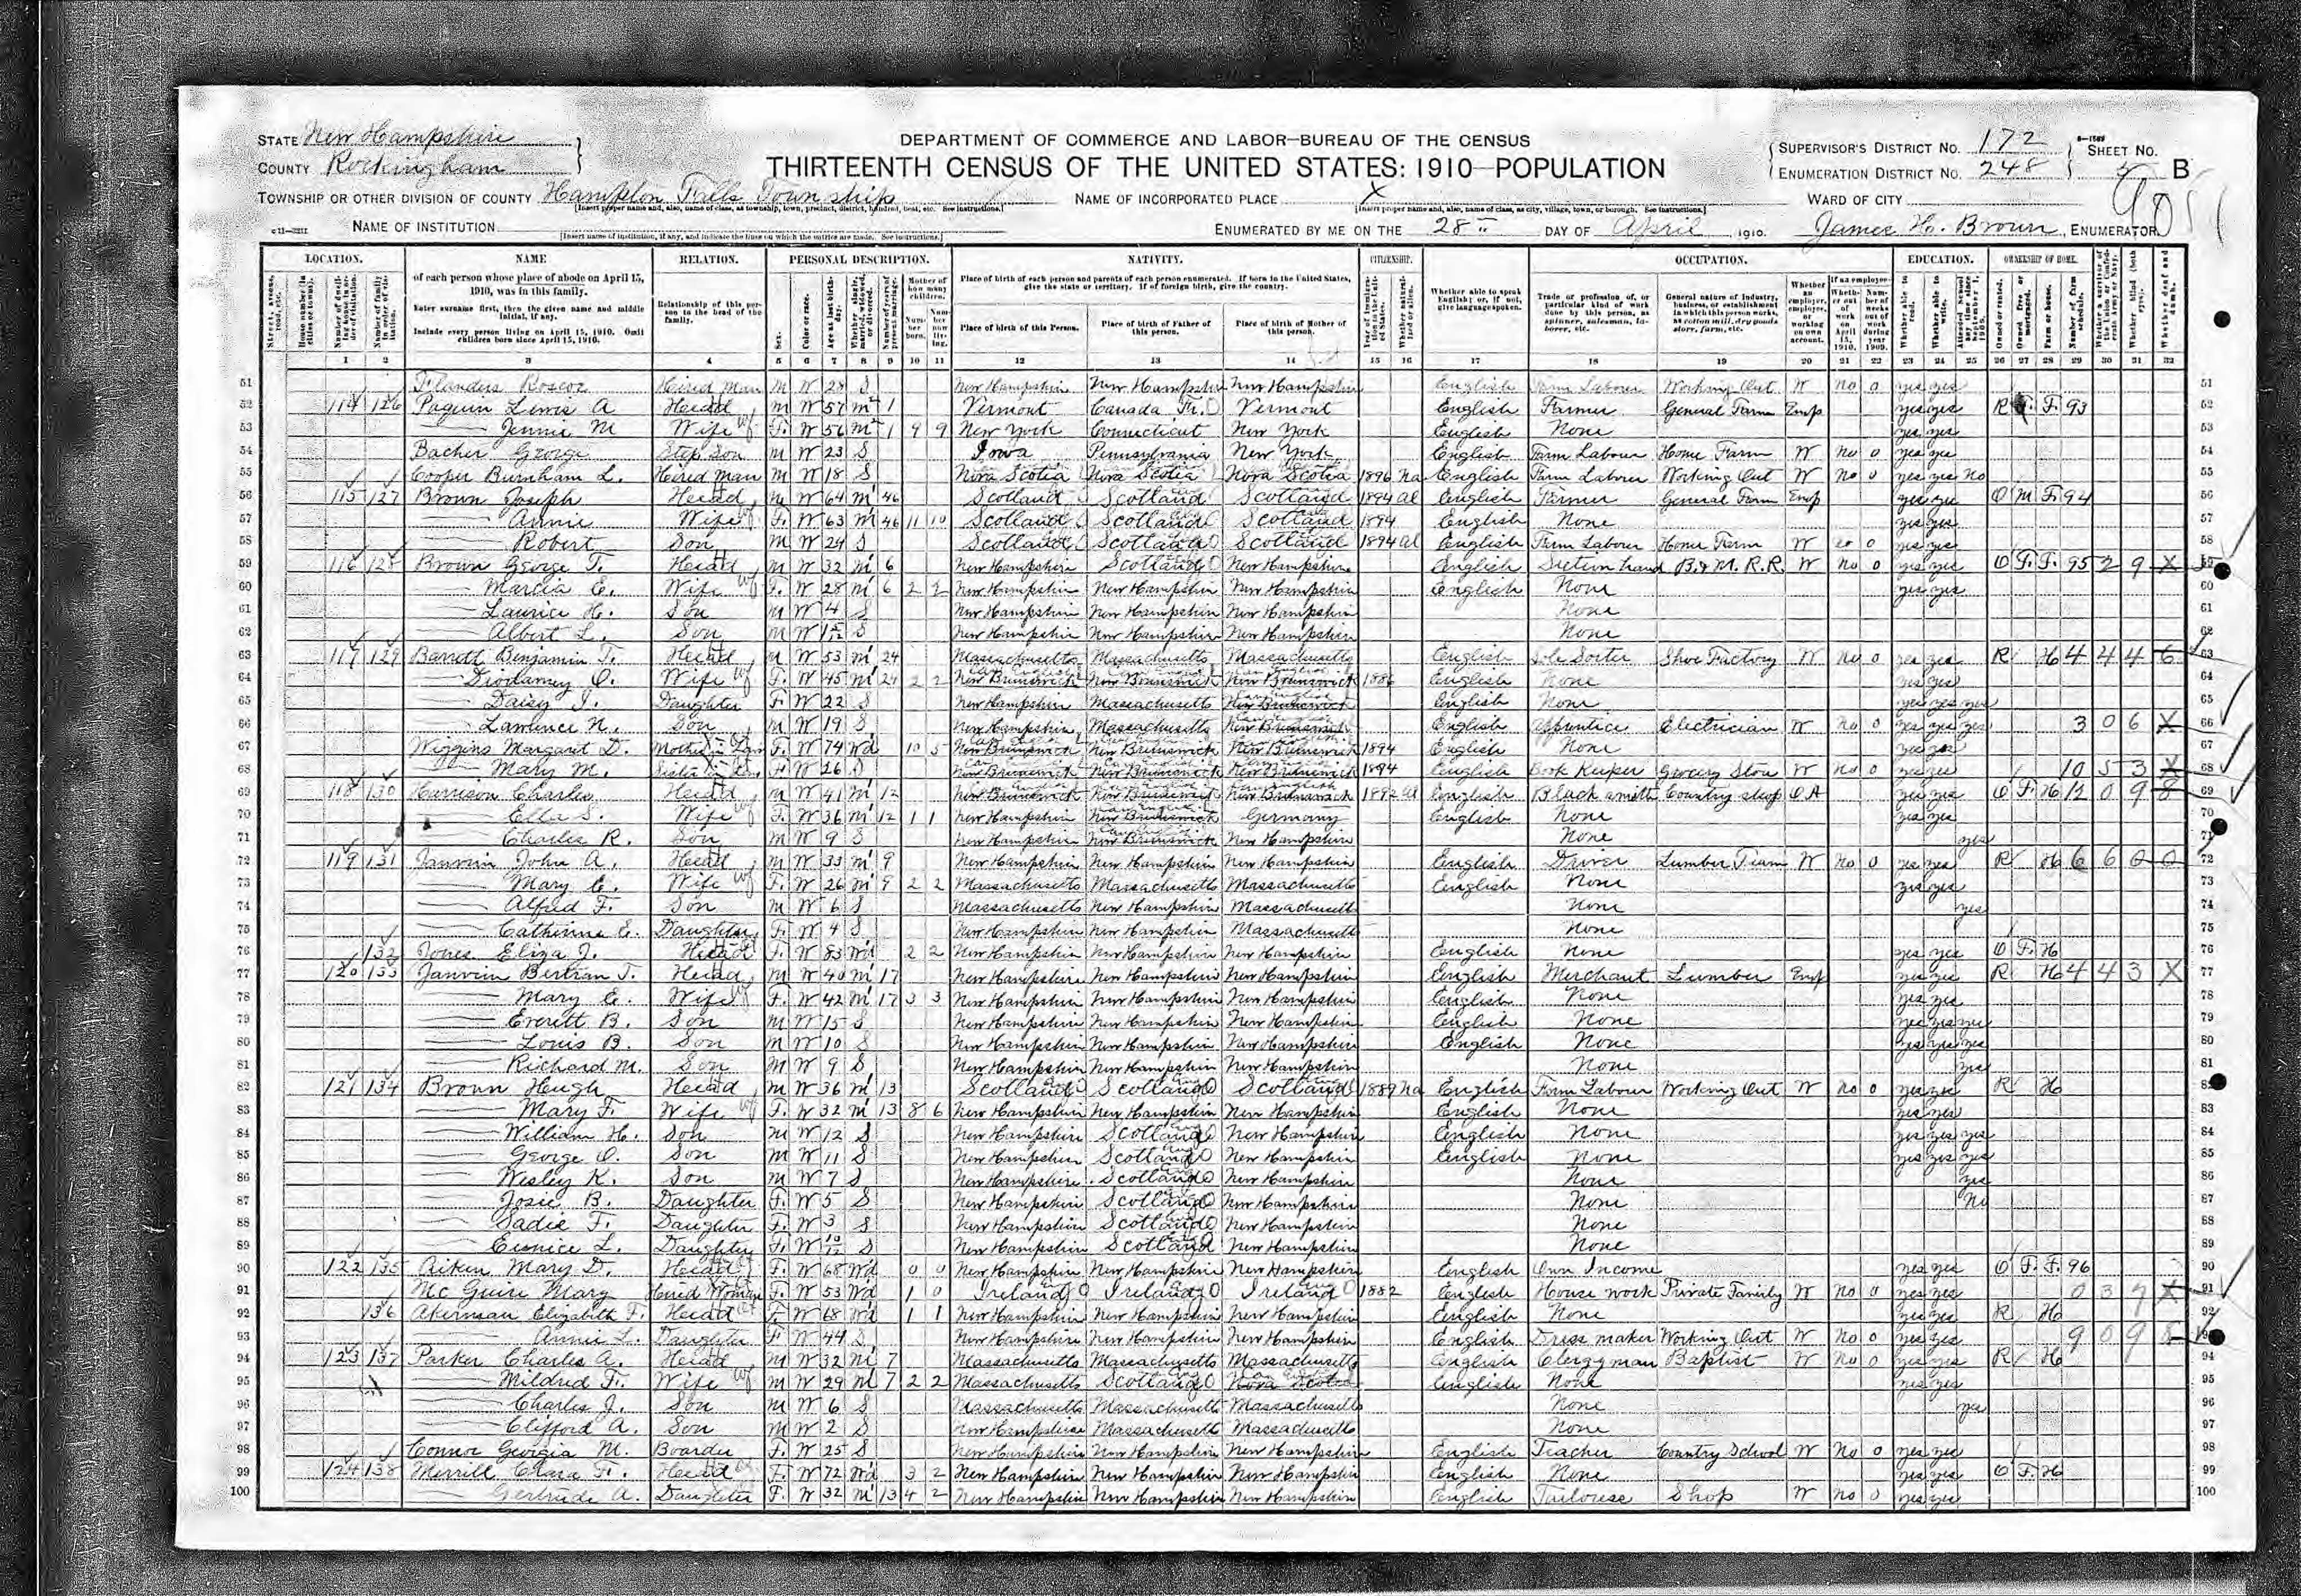 STATE New Hampshire
COUNTY Rockingham
DEPARTMENT OF COMMERCE AND LABOR—BUREAU OF THE CENSUS
THIRTEENTH CENSUS OF THE UNITED STATES: 1910—POPULATION
SUPERVISOR'S DISTRICT NO. 172
ENUMERATION DISTRICT NO. 248
SHEET NO.
B
TOWNSHIP OR OTHER DIVISION OF COUNTY Hampton Falls Township
NAME OF INCORPORATED PLACE X
WARD OF CITY
NAME OF INSTITUTION
ENUMERATED BY ME ON THE 28 DAY OF April, 1910. James H. Brown, ENUMERATOR
LOCATION. NAME RELATION. PERSONAL DESCRIPTION. NATIVITY. CITIZENSHIP. OCCUPATION. EDUCATION. OWNERSHIP OF HOME.
of each person whose place of abode on April 15, 1910, was in this family.
Enter surname first, then the given name and middle initial, if any.
Include every person living on April 15, 1910. Omit children born since April 15, 1910.
Relationship of this person to the head of the family.
Place of birth of each person and parents of each person enumerated. If born in the United States, give the state or territory. If of foreign birth, give the country.
Place of birth of this Person. Place of birth of Father of this person. Place of birth of Mother of this person.
Whether able to speak English; or, if not, give language spoken.
1 2 3 4 5 6 7 8 9 10 11 12 13 14 15 16 17 18 19 20 21 22 23 24 25 26 27 28 29 30 31 32
51 Flanders Roscoe Hired Man M W 28 S New Hampshire New Hampshire New Hampshire English Farm Labour Working Out W No 0 yes yes 51
52 114 126 Paquin Lewis A Head M W 57 1 Vermont Canada Fr. Vermont English Farmer General Farm Emp yes yes R F. 93 52
53 Jennie M Wife F. W 56 1 9 9 New York Connecticut New York English None yes yes 53
54 Bacher George Step Son M W 23 S Iowa Pennsylvania New York English Farm Labour Home Farm W No 0 yes yes 54
55 Cooper Burnham L. Hired Man M W 18 S Nova Scotia Nova Scotia Nova Scotia 1896 Na English Farm Labour Working Out W No 0 yes yes No 55
56 115 127 Brown Joseph Head M W 64 M 46 Scotland Scotland Scotland 1894 Al English Farmer General Farm Emp yes yes O M F. 94 56
57 Annie Wife F. W 63 M 46 11 10 Scotland Scotland Scotland 1894 English None yes yes 57
58 Robert Son M W 24 S Scotland Scotland Scotland 1894 Al English Farm Labour Home Farm W No 0 yes yes 58
59 116 128 Brown George T. Head M W 32 M 6 New Hampshire Scotland New Hampshire English Section hand B. & M. R.R. W No 0 yes yes O F. F. 95 2 9 X 59
60 Marcia E. Wife F. W 28 M 6 2 2 New Hampshire New Hampshire New Hampshire English None yes yes 60
61 Laurice H. Son M W 4 S New Hampshire New Hampshire New Hampshire None 61
62 Albert L. Son M W S New Hampshire New Hampshire New Hampshire None 62
63 117 129 Barrett Benjamin T. Head M W 53 M 24 Massachusetts Massachusetts Massachusetts English Sole Sorter Shoe Factory W No 0 yes yes R H 4 4 4 6 63
64 Wife F. W 45 M 24 2 2 New Brunswick New Brunswick New Brunswick 1886 English None yes yes 64
65 Daisy I. Daughter F. W 22 S New Hampshire Massachusetts New Brunswick English None yes yes yes 65
66 Lawrence N. Son M W 19 S New Hampshire Massachusetts New Brunswick English Apprentice Electrician W No 0 yes yes yes 3 0 6 X 66
67 Wiggins Margaret D. Mother in Law F. W 74 Wd 10 5 New Brunswick New Brunswick New Brunswick 1894 English None yes yes 67
68 Mary M. Sister in Law F W 26 S New Brunswick New Brunswick New Brunswick 1894 English Book Keeper Grocery Store W No 0 yes yes 10 5 3 X 68
69 118 130 Harrison Charles Head M W 41 M 12 New Brunswick New Brunswick New Brunswick 1892 Al English Blacksmith Country shop O A yes yes O F. H 12 0 9 8 69
70 Ella S. Wife F. W 36 M 12 1 1 New Hampshire New Brunswick Germany English None yes yes 70
71 Charles R. Son M W 9 S New Hampshire New Brunswick New Hampshire None yes 71
72 119 131 Janvrin John A. Head M W 33 M 9 New Hampshire New Hampshire New Hampshire English Driver Lumber Team W No 0 yes yes R H 6 6 0 0 72
73 Mary E. Wife F. W 26 M 9 2 2 Massachusetts Massachusetts Massachusetts English None yes yes 73
74 Alfred F. Son M W 6 S Massachusetts New Hampshire Massachusetts None yes 74
75 Catherine E. Daughter F. W 4 S New Hampshire New Hampshire Massachusetts None 75
76 132 Jones Eliza J. Head F. W 83 Wd 2 2 New Hampshire New Hampshire New Hampshire English None yes yes O F. H 76
77 120 133 Janvrin Bertran T. Head M W 40 M 17 New Hampshire New Hampshire New Hampshire English Merchant Lumber Emp yes yes R H 4 4 3 X 77
78 Mary E. Wife F. W 42 M 17 3 3 New Hampshire New Hampshire New Hampshire English None yes yes 78
79 Everett B. Son M W 15 S New Hampshire New Hampshire New Hampshire English None yes yes yes 79
80 Louis B. Son M W 10 S New Hampshire New Hampshire New Hampshire English None yes yes yes 80
81 Richard M. Son M W 9 S New Hampshire New Hampshire New Hampshire None yes 81
82 121 134 Brown Hugh Head M W 36 M 13 Scotland Scotland Scotland 1889 Na English Farm Labour Working Out W No 0 yes yes R H 82
83 Mary F. Wife F. W 32 M 13 8 6 New Hampshire New Hampshire New Hampshire English None yes yes 83
84 William H. Son M W 12 S New Hampshire Scotland New Hampshire English None yes yes yes 84
85 George O. Son M W 11 S New Hampshire Scotland New Hampshire English None yes yes yes 85
86 Wesley K. Son M W 7 S New Hampshire Scotland New Hampshire None yes 86
87 Josie B. Daughter F. W 5 S New Hampshire Scotland New Hampshire None No 87
88 Sadie F. Daughter F. W 3 S New Hampshire Scotland New Hampshire None 88
89 Eunice L. Daughter F. W 10/12 S New Hampshire Scotland New Hampshire None 89
90 122 135 Aiken Mary D. Head F. W 68 Wd 0 0 New Hampshire New Hampshire New Hampshire English Own Income yes yes O F. F. 96 90
91 Mc Guire Mary Hired Woman F. W 53 Wd 1 0 Ireland Ireland Ireland 1882 English House work Private Family W No 0 yes yes 0 3 7 X 91
92 136 Akerman Elizabeth F. Head F. W 68 Wd 1 1 New Hampshire New Hampshire New Hampshire English None yes yes R H 92
93 Annie L. Daughter F W 44 S New Hampshire New Hampshire New Hampshire English Dress maker Working Out W No 0 yes yes 9 0 9 8
94 123 137 Parker Charles A. Head M W 32 M 7 Massachusetts Massachusetts Massachusetts English Clergyman Baptist W No 0 yes yes R H 94
95 Mildred F. Wife M W 29 M 7 2 2 Massachusetts Scotland Nova Scotia English None yes yes 95
96 Charles J. Son M W 6 S Massachusetts Massachusetts Massachusetts None yes 96
97 Clifford A. Son M W 2 S New Hampshire Massachusetts Massachusetts None 97
98 Connor Georgia M. Boarder F. W 25 S New Hampshire New Hampshire New Hampshire English Teacher Country School W No 0 yes yes 98
99 124 138 Merrill Clara F. Head F. W 72 Wd 3 2 New Hampshire New Hampshire New Hampshire English None yes yes O F. H 99
100 Gertrude A. Daughter F. W 32 M 13 4 2 New Hampshire New Hampshire New Hampshire English Tailoress Shop W No 0 yes yes 100